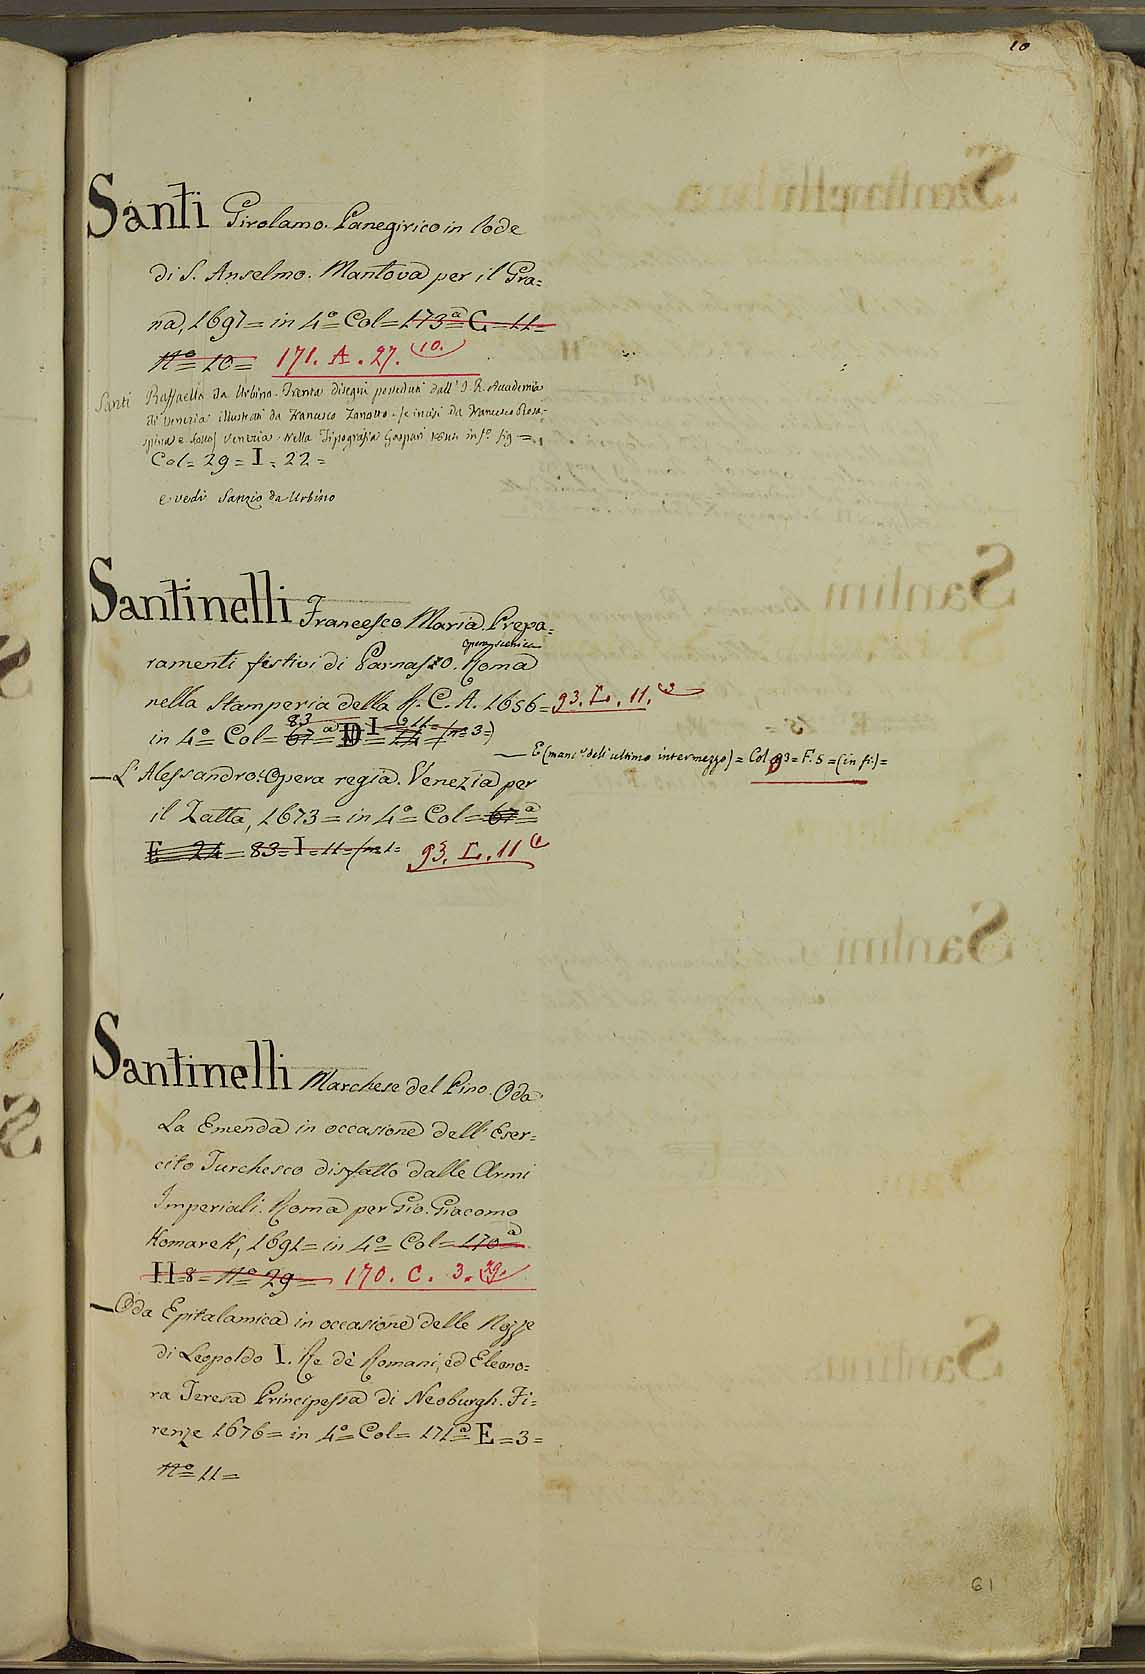 10
Santi Girolamo. Panegirico in lode
di S. Anselmo. Mantova per il Gra=
na, 1697= in 4º= Col= 173ª= C= 11=
Nº= 10= 171. A. 27. (10.)
Santi Raffaello da Urbino. Trenta disegni posseduti dall' I. R. Accademia
di Venezia illustrati da Francesco Zanotto. Se incisi da Francesco Rosa-
spina e Venezia. Nella Tipografia Gaspari in fº. fig =
Col= 29= I= 22=
e vedi Sanzio da Urbino
Santinelli Francesco Maria. Prepa=
ramenti festivi di Parnasso. Opera scenica Roma
nella Stamperia della R. C. A. 1656= 93. L. 11. (3
in 4º= Col= 67ª= 83 D I = 11= (nº 3=)
— E (manca dell' ultimo intermezzo) = Col 93= F. 5 = (in fi:)=
— L'Alessandro: Opera regia. Venezia per
il Zatta, 1673= in 4º= Col= 67ª=
E= 24= 83= I= 11= (nº 1= 93. L. 11 (1
Santinelli Marchese del Pino. Oda
La Emenda in occasione dell' Eser=
cito Turchesco disfatto dalle Armi
Imperiali. Roma per Gio. Giacomo
Komarek, 1691= in 4º= Col= 170ª=
H= 8= Nº= 29= 170. C. 3. (29.)
— Oda Epitalamica in occasione delle Nozze
di Leopoldo I. Re de' Romani, ed Eleono=
ra Teresa Principessa di Neoburgh. Fi=
renze 1676= in 4º= Col= 171ª= E= 3=
Nº= 11=
61